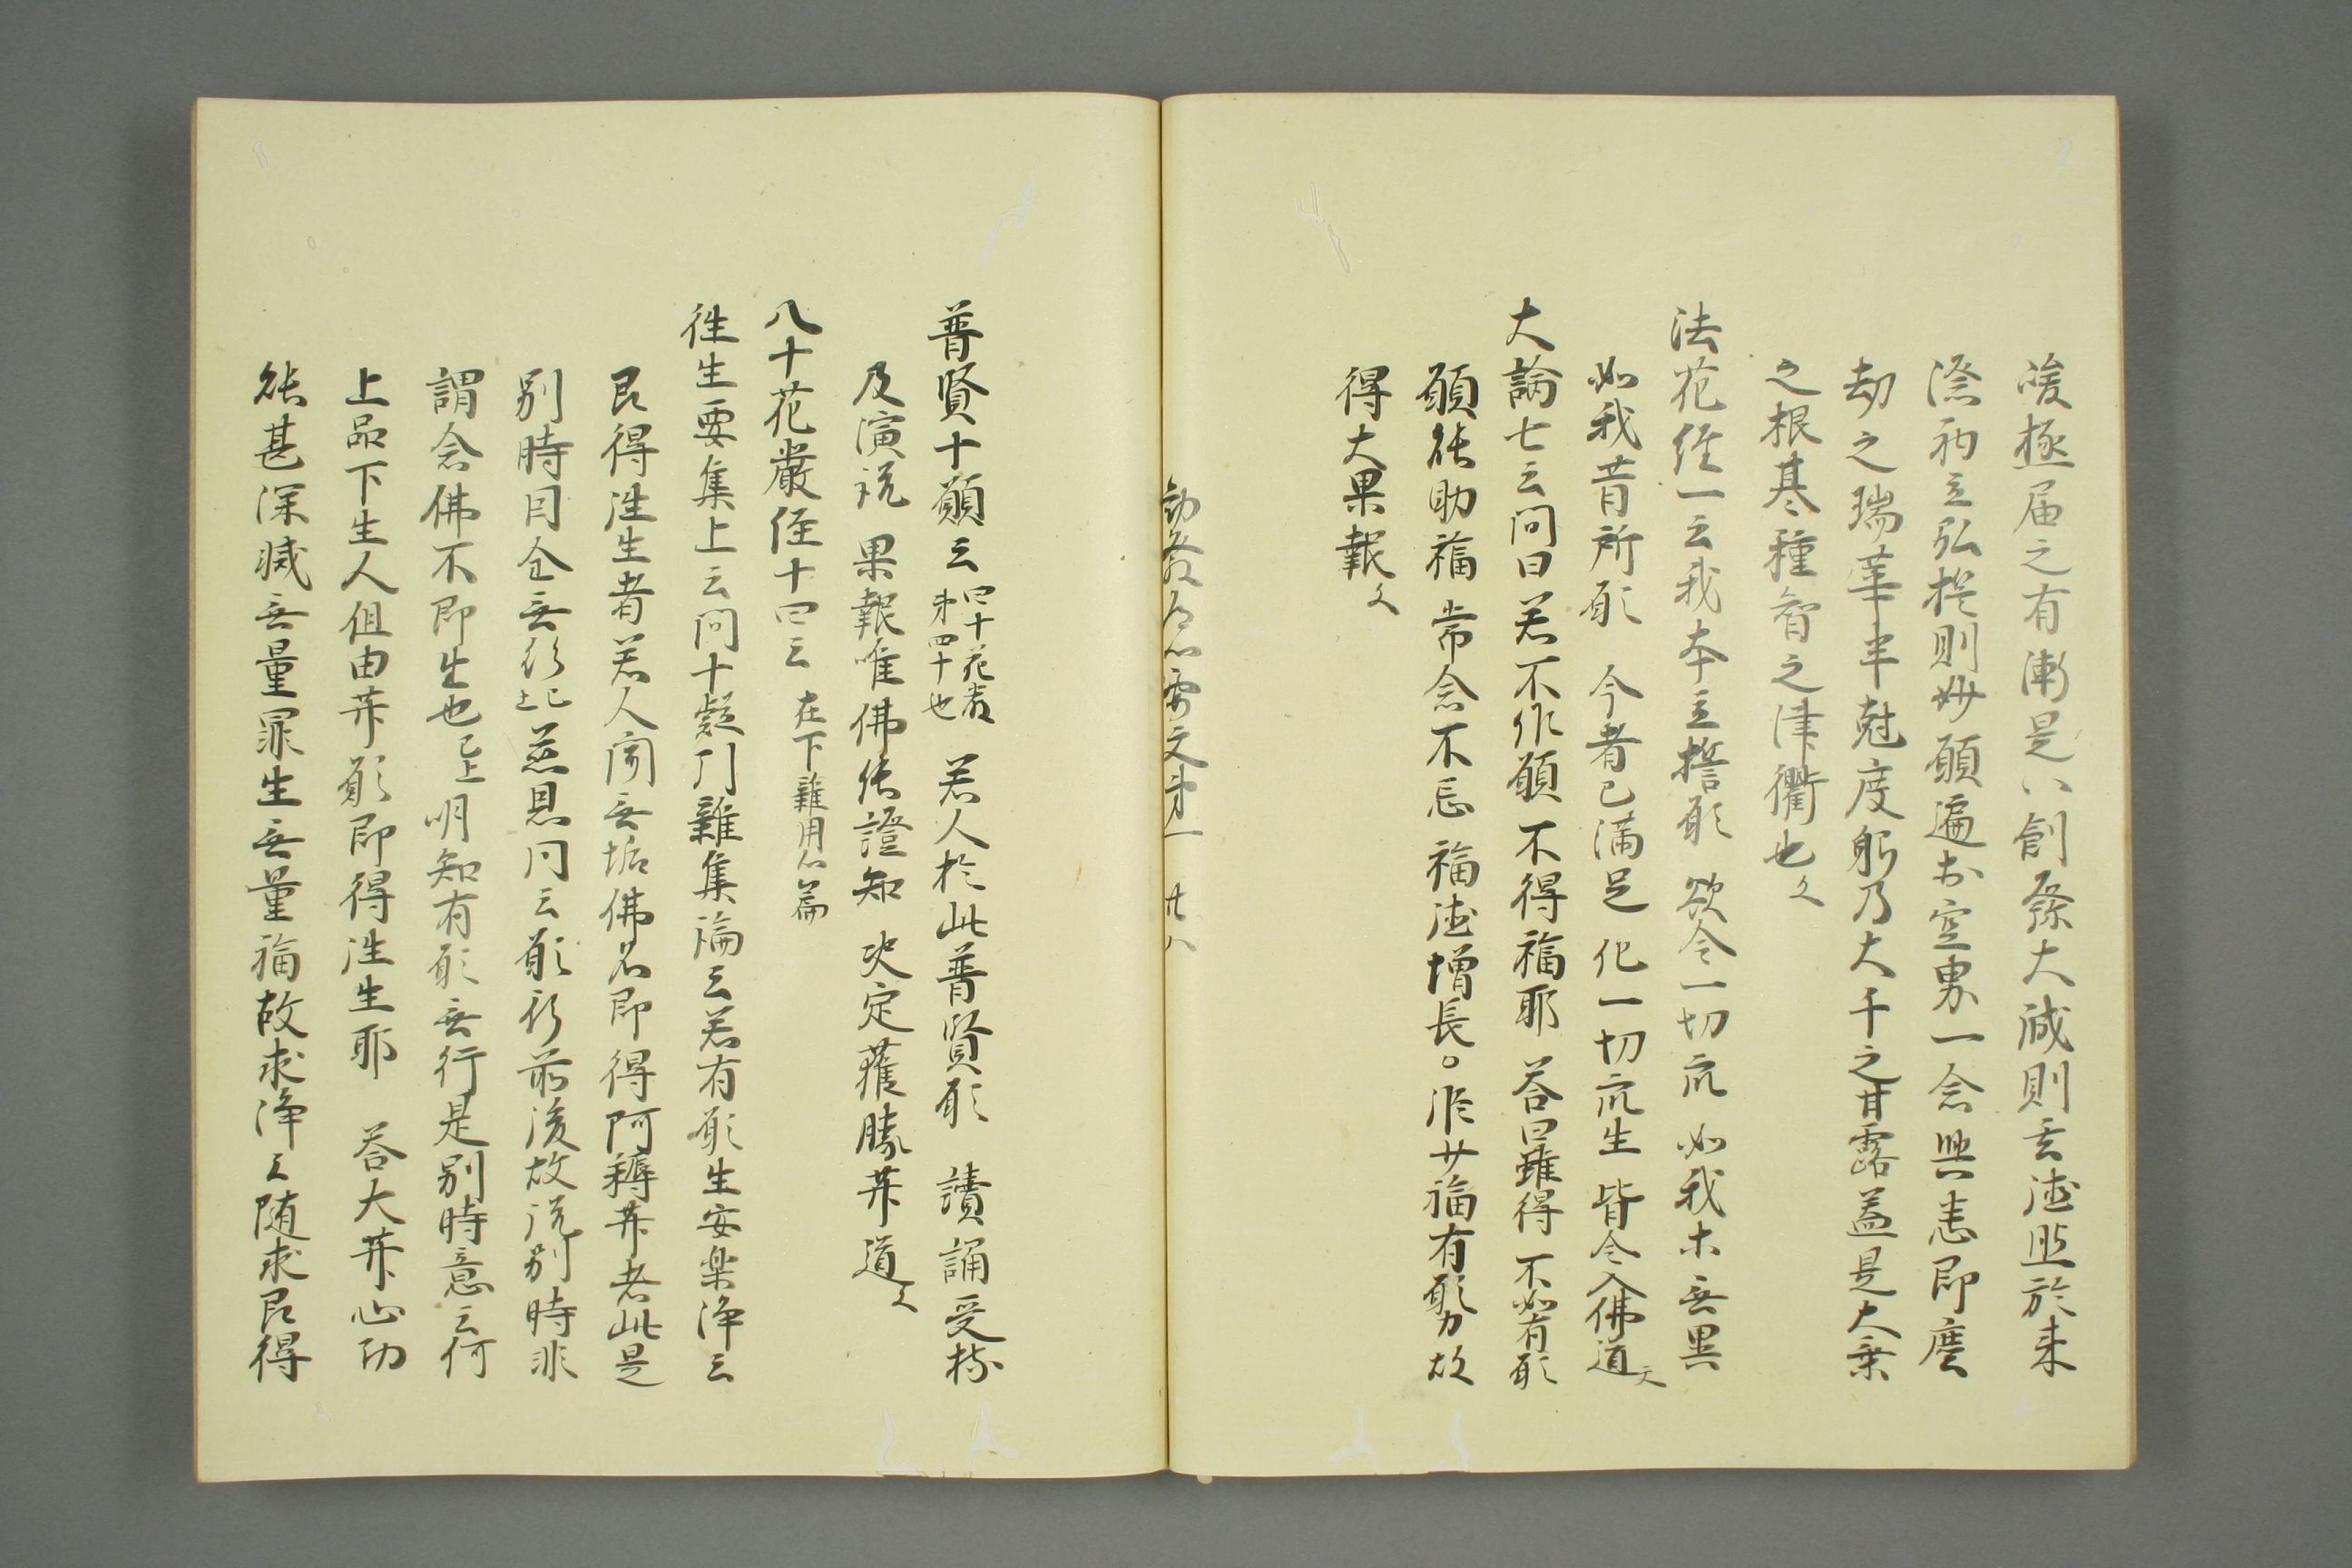 峻極届之有漸是以創發大誠則玄德照於未
際初立弘揩則妙願遍於空界一念興悲即塵
劫之瑞華半尅度躬乃大千之甘露蓋是大乗
之根基種智之津衢也文
法花經一云我本立誓願 欲令一切众 如我木無異
如我昔所願 今者已満足 化一切众生 皆令入佛道文
大論七云问曰若不作願不得福耶 荅曰雖得不如有願
願能助福 常念不忘 福德増長。准廿福有願力故
得大果報文
勸發 心要文第一 廿八
普賢十願云四十花嚴第四十也 若人於此普賢願 讀誦受持
及演説 果報唯佛能證知 决定獲勝𦬇道文
八十花嚴経十四云 在下雜用心篇
徃生要集上云问十疑門雜集論云若有願生安楽浄云
即得徃生者若人闻無垢佛名即得阿耨𦬇者此是
別時因全無行已上慈恩同云願行前後故説別時非
謂念佛不即生也已上明知有願無行是別時意云何
上品下生人但由𦬇願即得徃生耶 荅大𦬇心功
能甚深滅無量罪生無量福故求浄云随求即得